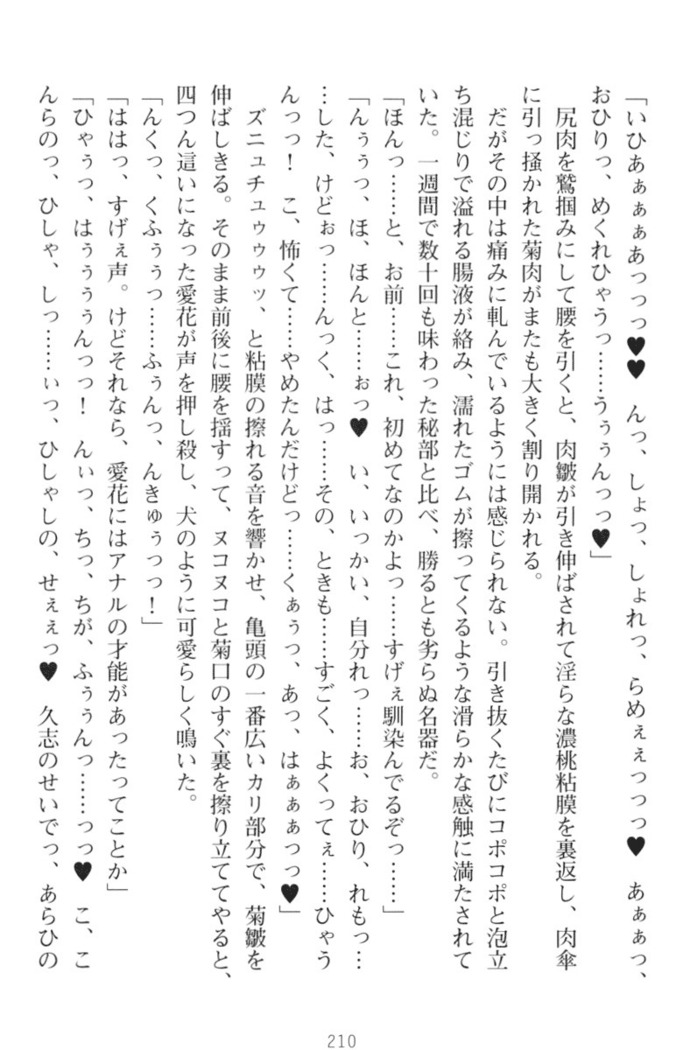 「いひあぁぁぁあっっっ♥♥　んっ、しょっ、しょれっ、らめぇぇっっっ♥　あぁぁっ、
おひりっ、めくれひゃうっ……うぅぅんっっ♥」
尻肉を鷲掴みにして腰を引くと、肉皺が引き伸ばされて淫らな濃桃粘膜を裏返し、肉傘
に引っ掻かれた菊肉がまたも大きく割り開かれる。
だがその中は痛みに軋んでいるようには感じられない。引き抜くたびにコポコポと泡立
ち混じりで溢れる腸液が絡み、濡れたゴムが擦ってくるような滑らかな感触に満たされて
いた。一週間で数十回も味わった秘部と比べ、勝るとも劣らぬ名器だ。
「ほんっ……と、お前……これ、初めてなのかよっ……すげぇ馴染んでるぞっ……」
「んぅぅっ、ほ、ほんと……ぉっ♥　い、いっかい、自分れっ……お、おひり、れもっ…
…した、けどぉっ……んっく、はっ……その、ときも……すごく、よくってぇ……ひゃう
んっっ！　こ、怖くて……やめたんだけどっ……くぁぅっ、あっ、はぁぁぁっっ♥」
ズニュチュゥゥゥッ、と粘膜の擦れる音を響かせ、亀頭の一番広いカリ部分で、菊皺を
伸ばしきる。そのまま前後に腰を揺すって、ヌコヌコと菊口のすぐ裏を擦り立ててやると、
四つん這いになった愛花が声を押し殺し、犬のように可愛らしく鳴いた。
「んくっ、くふぅぅっ……ふぅんっ、んきゅぅっっ！」
「ははっ、すげぇ声。けどそれなら、愛花にはアナルの才能があったってことか」
「ひゃぅっ、はぅぅぅぅんっっ！　んぃっ、ちっ、ちが、ふぅぅんっ……っっ♥　こ、こ
んらのっ、ひしゃ、しっ……ぃっ、ひしゃしの、せぇぇっ♥　久志のせいでっ、あらひの
210